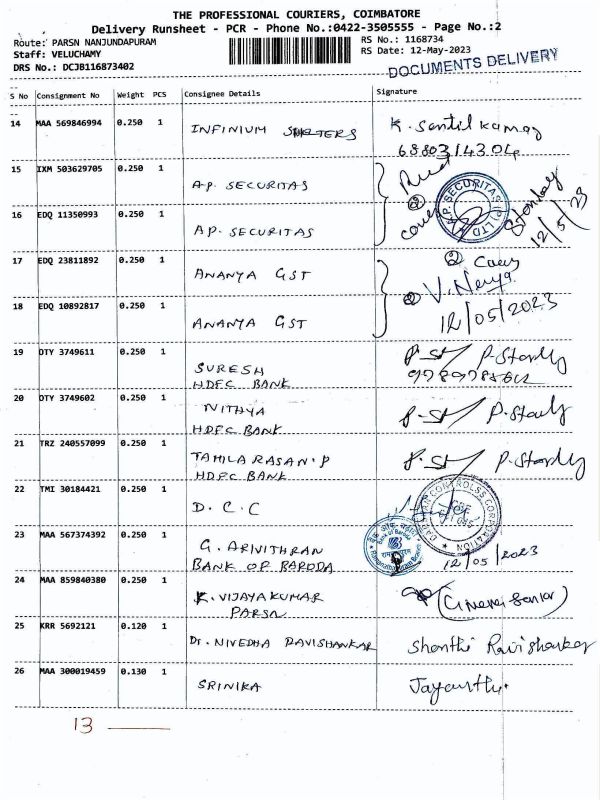 THE PROFESSIONAL COURIERS, COIMBATORE
Delivery Runsheet - PCR - Phone No.:0422-3505555 - Page No.:2
Route: PARSN NANJUNDAPURAM
RS No.: 1168734
Staff: VELUCHAMY
RS Date: 12-May-2023
DRS No.: DCJB116873402
DOCUMENTS DELIVERY
S No Consignment No Weight PCS Consignee Details Signature
14 MAA 569846994 0.250 1 INFINIUM K. Sentil Kumar
15 IXM 503629705 0.250 1 A.P. SECURITAS
A.P. SECURITAS (P) LTD
12/5/23
16 EDQ 11350993 0.250 1 A.P. SECURITAS
17 EDQ 23811892 0.250 1 ANANYA GST
18 EDQ 10892817 0.250 1 ANANYA GST
12/05/2023
19 DTY 3749611 0.250 1 SURESH
HDFC BANK
20 DTY 3749602 0.250 1 NITHYA
HDFC BANK
21 TRZ 240557099 0.250 1 TAMILARASAN.P
HDFC BANK
22 TMI 30184421 0.250 1 D.C.C
23 MAA 567374392 0.250 1 G. ARIVITHRAN
BANK OF BARODA
12/05/2023
24 MAA 859840380 0.250 1 K. VIJAYAKUMAR
PARSN
25 KRR 5692121 0.120 1 Dr. NIVEDHA RAVISHANKAR Shanthi Ravishankar
26 MAA 300019459 0.130 1 SRINIKA
13